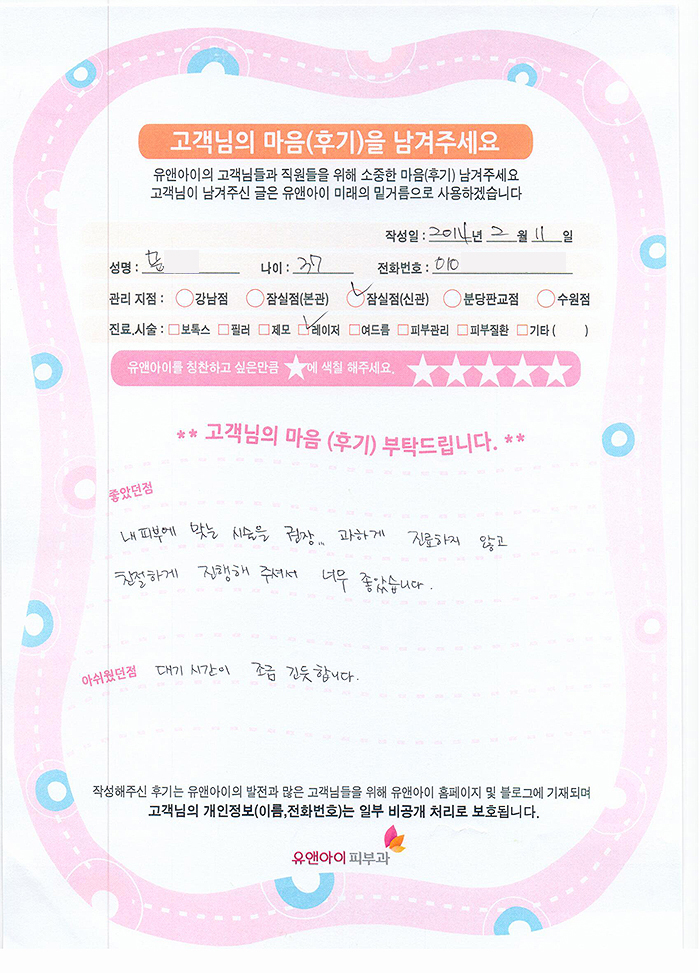 고객님의 마음(후기)을 남겨주세요
유앤아이의 고객님들과 직원들을 위해 소중한 마음(후기) 남겨주세요
고객님이 남겨주신 글은 유앤아이 미래의 밑거름으로 사용하겠습니다
작성일 : 2014년 2월 11일
성명 : 나이 : 37 전화번호 : 010
관리 지점 : 강남점 잠실점(본관) 잠실점(신관) 분당판교점 수원점
진료.시술 : 보톡스 필러 제모 레이저 여드름 피부관리 피부질환 기타 ( )
유앤아이를 칭찬하고 싶은만큼 ★에 색칠 해주세요. ★★★★★
** 고객님의 마음 (후기) 부탁드립니다. **
좋았던점
내 피부에 맞는 시술을 권장,,, 과하게 진료하지 않고
친절하게 진행해 주셔서 너무 좋았습니다.
아쉬웠던점 대기 시간이 조금 긴듯합니다.
작성해주신 후기는 유앤아이의 발전과 많은 고객님들을 위해 유앤아이 홈페이지 및 블로그에 기재되며
고객님의 개인정보(이름,전화번호)는 일부 비공개 처리로 보호됩니다.
유앤아이피부과